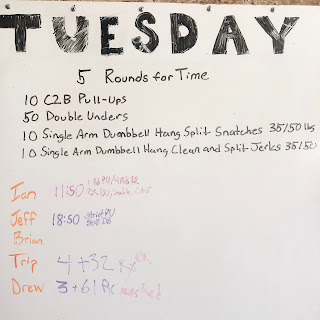 TUESDAY
5 Rounds for Time
10 C2B Pull-Ups
50 Double Unders
10 Single Arm Dumbbell Hang Split Snatches 35/50 lbs
10 Single Arm Dumbbell Hang Clean and Split Jerks 35/50
Ian 11:50
Jeff 18:50 strict PU
Brian
Trip 4+32 Rx
Drew 3+61 Rx